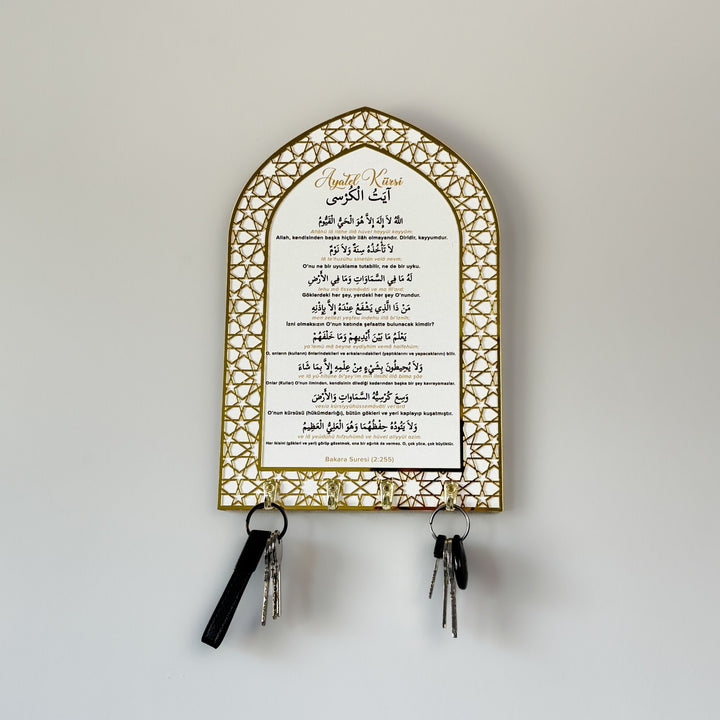 Ayatel Kürsi
آيَتُ الْكُرْسى
اَللّٰهُ لَا اِلٰهَ اِلَّا هُوَ الْحَيُّ الْقَيُّومُ
Allâhü lâ ilâhe illâ hüvel hayyül kayyûm;
Allah, kendisinden başka hiçbir ilâh olmayandır. Diridir, kayyumdur.
لَا تَأْخُذُهُ سِنَةٌ وَلَا نَوْمٌ
lâ te'huzühu sinetün velâ nevm;
O'nu ne bir uyuklama tutabilir, ne de bir uyku.
لَهُ مَا فِي السَّمَاوَاتِ وَمَا فِي الْأَرْضِ
lehu mâ fissemâvâti ve ma fil'ard;
Göklerdeki her şey, yerdeki her şey O'nundur.
مَنْ ذَا الَّذِي يَشْفَعُ عِنْدَهُ إِلَّا بِإِذْنِهِ
men zellezi yeşfeu indehu illâ bi'iznih;
İzni olmaksızın O'nun katında şefaatte bulunacak kimdir?
يَعْلَمُ مَا بَيْنَ أَيْدِيهِمْ وَمَا خَلْفَهُمْ
ya'lemü mâ beyne eydiyhim vemâ halfehüm;
O, onların (kulların) önlerindekileri ve arkalarındakileri (yaptıklarını ve yapacaklarını) bilir.
وَلَا يُحِيطُونَ بِشَيْءٍ مِنْ عِلْمِهِ إِلَّا بِمَا شَاءَ
ve lâ yü-hîtûne bi'şey'im min ilmihî illâ bima şâe
Onlar (Kullar) O'nun ilminden, kendisinin dilediği kadarından başka bir şey kavrayamazlar.
وَسِعَ كُرْسِيُّهُ السَّمَاوَاتِ وَالْأَرْضَ
vesia kürsiyyühüssemâvâti vel'ard
O'nun kürsüsü (hükümdarlığı), bütün gökleri ve yeri kaplayıp kuşatmıştır.
وَلَا يَئُودُهُ حِفْظُهُمَا وَهُوَ الْعَلِيُّ الْعَظِيمُ
ve lâ yeûdühû hıfzuhümâ ve hüvel aliyyül azim.
Her ikisini (gökleri ve yeri) görüp gözetmek, ona bir ağırlık da vermez. O, çok yüce, çok büyüktür.
Bakara Suresi (2:255)